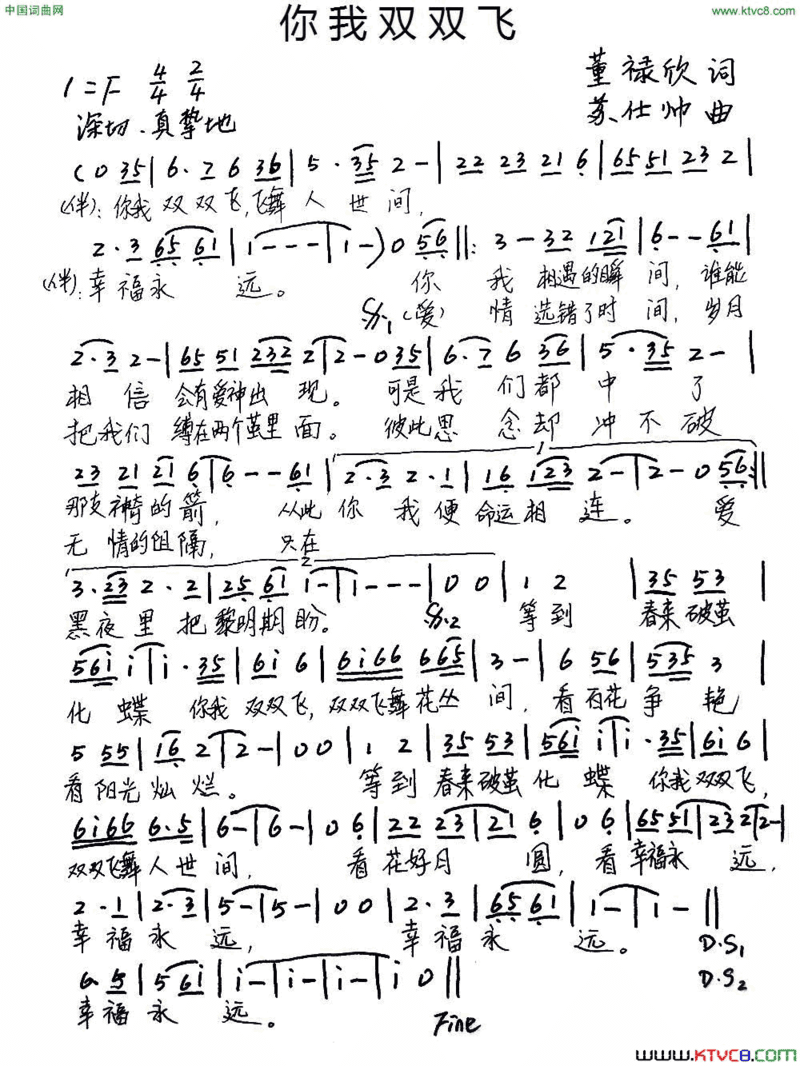 中国词曲网
www.ktvc8.com
你我双双飞
1=F 4/4 2/4
董禄欣 词
深切、真挚地
苏仕帅 曲
(0 35 | 6·7 6 36 | 5·35 2 - | 22 23 21 6 | 65 51 23 2 |
(伴):你我双双飞,飞舞人世间,
2·3 65 61 | 1 - - - | 1 - ) 0 56 ‖: 3 - 32 121 | 6 - - 61 |
(伴):幸福永远。 你我相遇的瞬间,谁能
(爱)情选错了时间,岁月
2·3 2 - | 65 51 232 2 | 2 - 0 35 | 6·7 6 36 | 5·35 2 - |
相信会有爱神出现。 可是我们都中了
把我们缚在两个茧里面。 彼此思念却冲不破
23 21 21 6 | 6 - - 61 | 2·3 2·1 | 16 123 2 - | 2 - 0 56 :‖
那支神奇的箭, 从此你我便命运相连。 爱
无情的阻隔, 只在
3·23 2·2 | 25 61 i - | i - - - | 0 0 | 1 2 | 35 53 |
黑夜里把黎明期盼。 等到 春来破茧
56i i | i·35 | 6i 6 | 6i66 665 | 3 - | 6 56 | 535 3 |
化蝶 你我双双飞,双双飞舞花丛间,看百花争艳
5 55 | 16 2 | 2 - | 0 0 | 1 2 | 35 53 | 56i i | i·35 | 6i 6 |
看阳光灿烂。 等到春来破茧化蝶 你我双双飞,
6i66 6·5 | 6 - | 6 - | 0 6 | 22 23 | 21 6 | 0 6 | 65 51 | 232 2 | 2 - |
双双飞舞人世间, 看花好月圆,看幸福永远,
2·1 | 2·3 | 5 - | 5 - | 0 0 | 2·3 | 65 61 | 1 - | i - ‖
幸福永远, 幸福永远。 D.S1
6·5 | 5 6i | i - | i - | i - | i 0 ‖
D.S2
幸福永远。 Fine
www.KTVC8.com